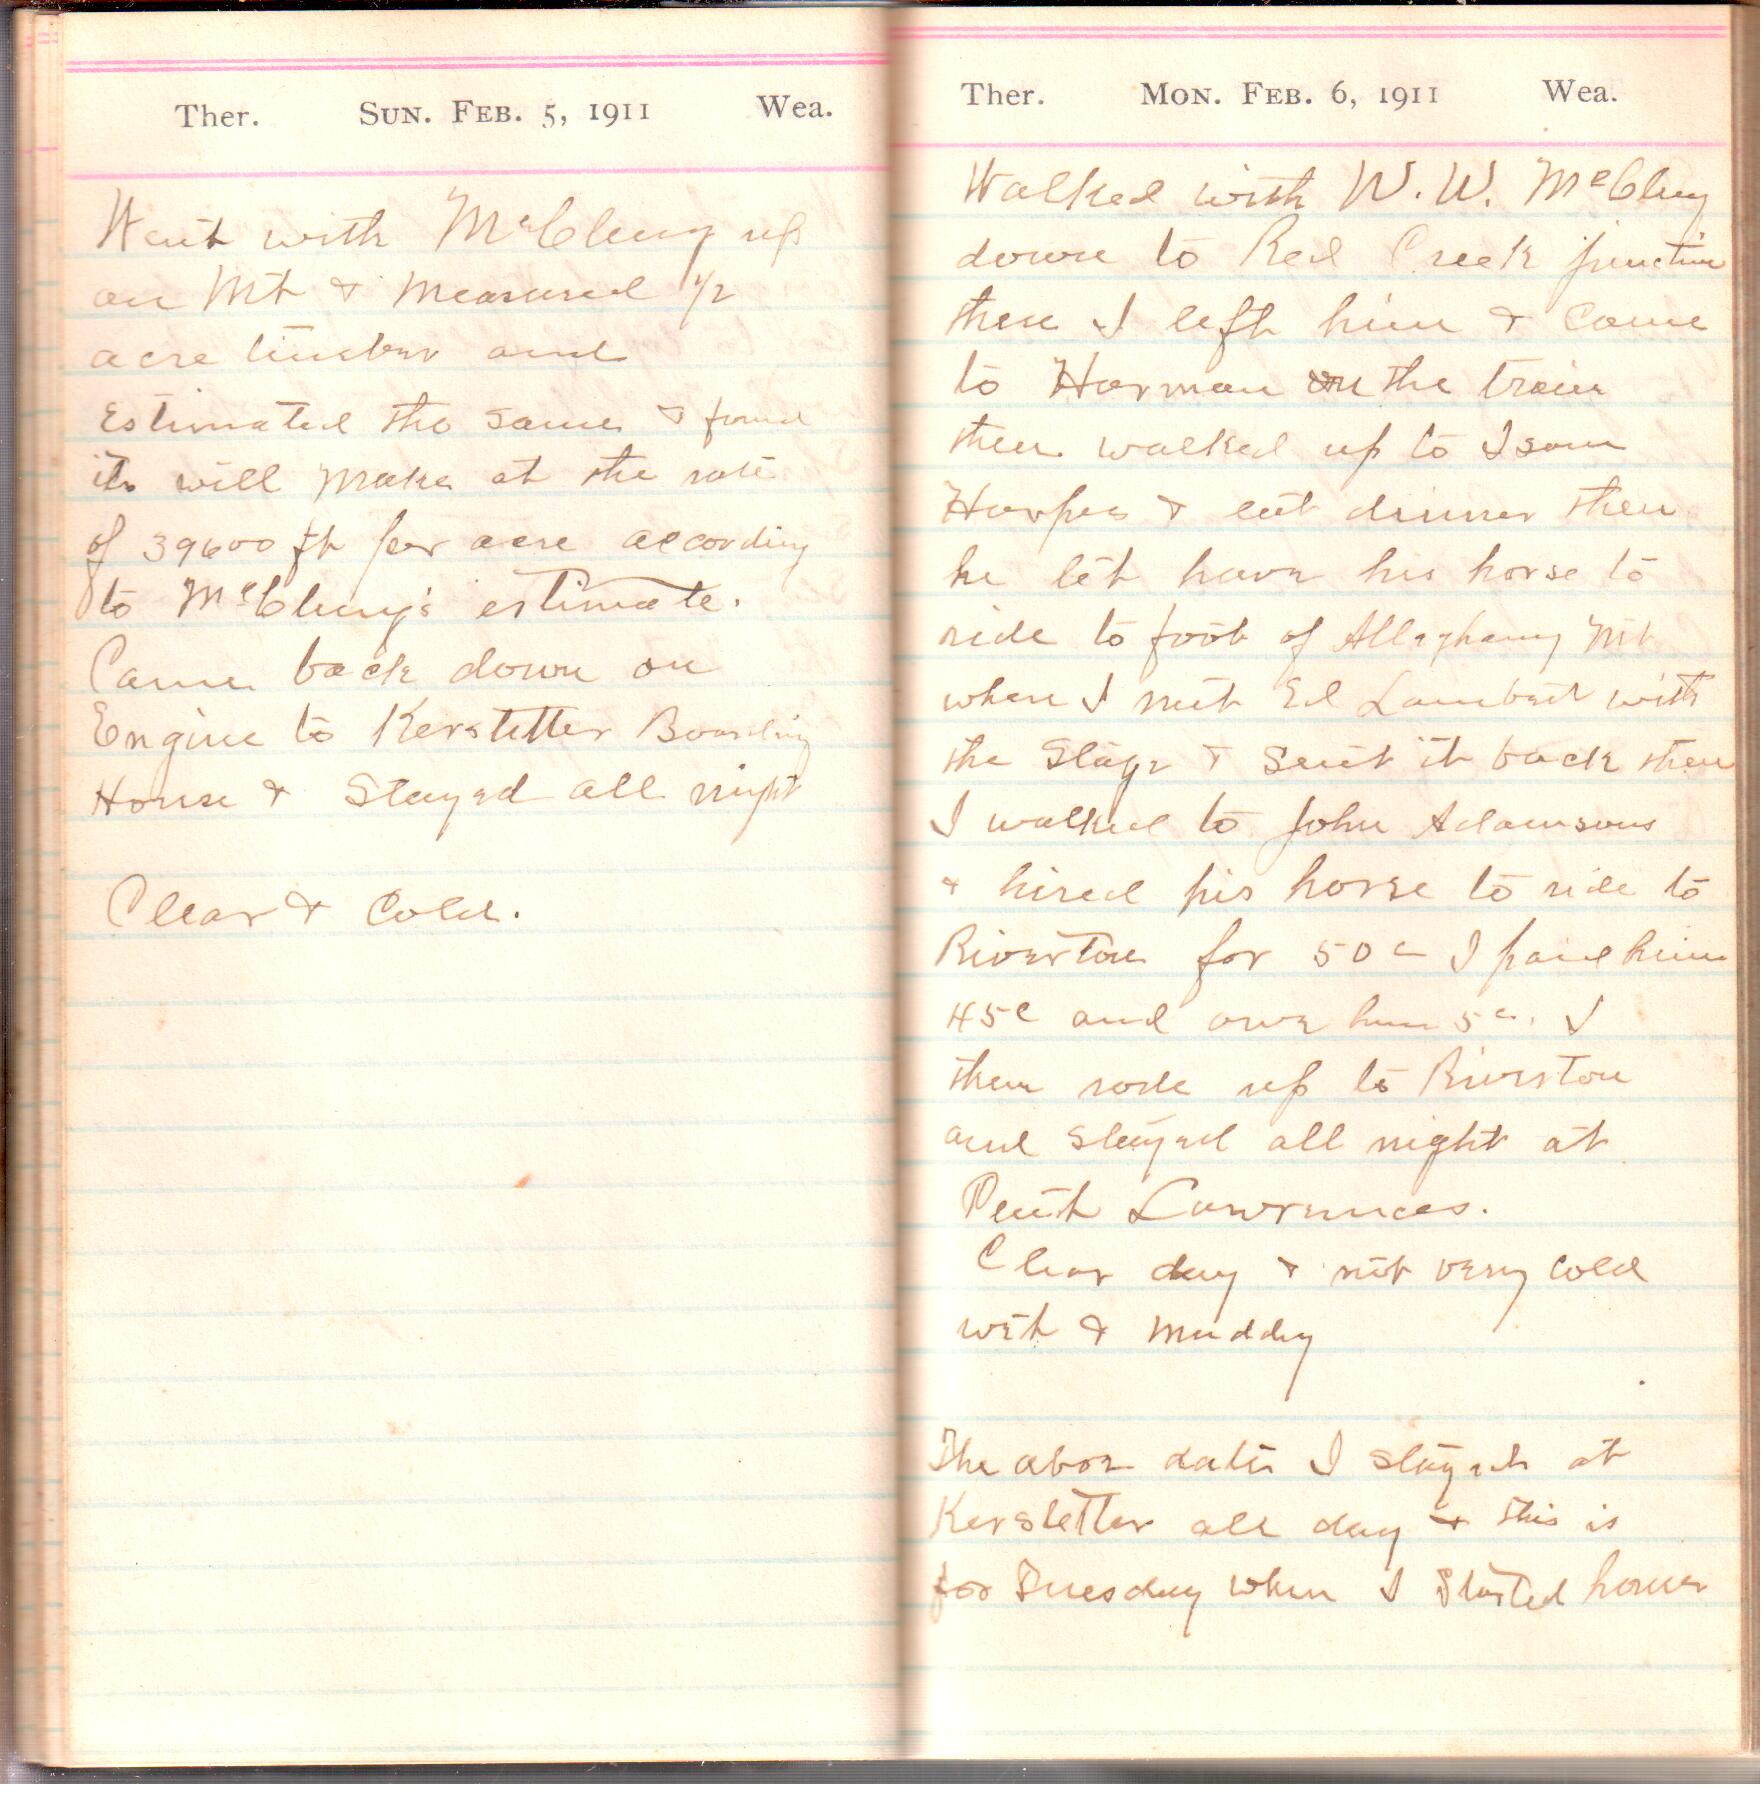 Ther. Sun. Feb. 5, 1911 Wea.
Went with McClung up
on Mt & Measured 1/2
acre timber and
Estimated the same & found
it will make at the rate
of 39600 ft per acre according
to McClung's estimate.
Came back down on
Engine to Kerstetter Boarding
House & Stayed all night
Clear & Cold.
Ther. Mon. Feb. 6, 1911 Wea.
Walked with W. W. McClung
down to Red Creek junction
there I left him & Came
to Harman on the train
then walked up to Isom
Harpers & eat dinner then
he let have his horse to
ride to foot of Alleghany Mt
when I met Ed Lambert with
the Stage & Sent it back then
I walked to John Adamsons
& hired his horse to ride to
Riverton for 50c I paid him
45c and owe him 5c. I
then rode up to Riverton
and stayed all night at
Lawrences.
Clear day & not very cold
wet & muddy
The above date I stayed at
Kerstetter all day & this is
for Tuesday when I Started home